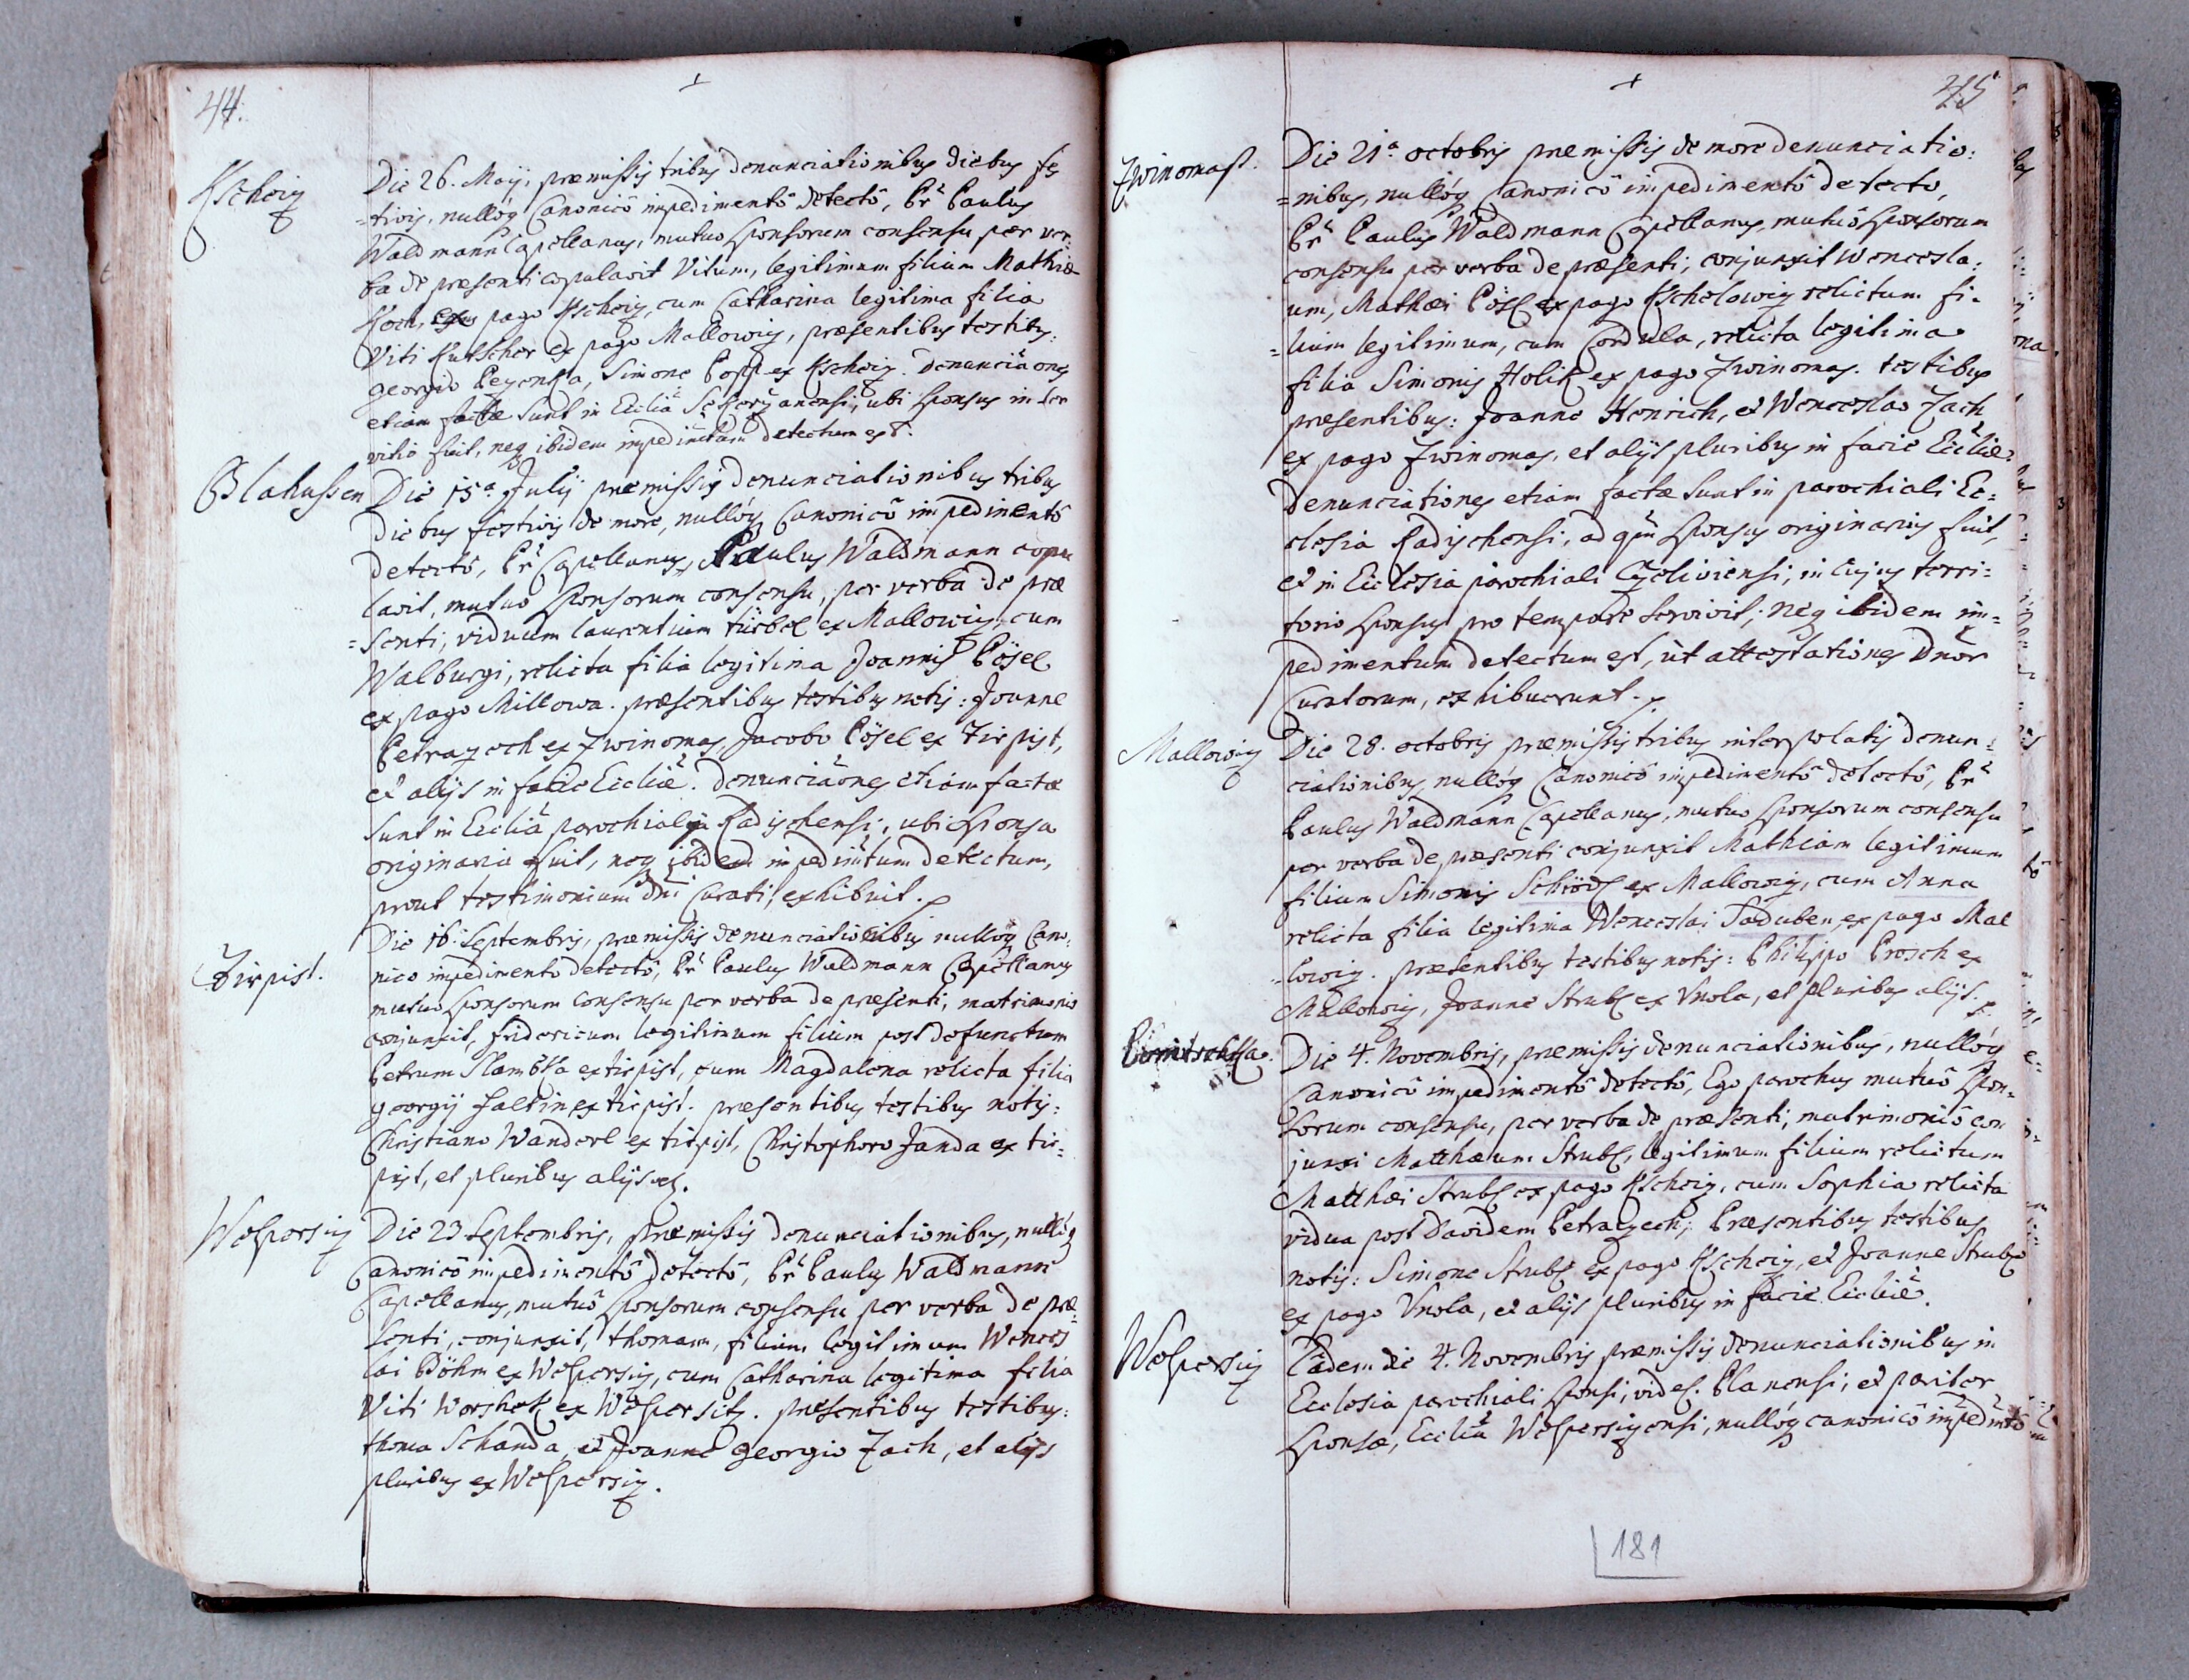 44.
Kscheiz
Die 26. Maij, præmissis tribus denunciationibus diebus fes
=tivis, nullóq Canonicô impedimentô detectô, Pr Paulus
Waldmann Capellanus, mutuo sponsorum consensu per ver:
ba de præsenti copulavit Vitum, legitimum filium Mathiæ
Koch, pago Kscheiz, cum Catharina legitima filia
Viti Kutscher ex pago Mallowiz, præsentibus testibus:
georgio, Simone Popp ex Kscheiz. Denunciaões
etiam factæ sunt in Ecclia, ubi sponsus in ser
vitio fuit, neq ibidem impedimtum detectum est.
Blahussen
Die 15a Julij præmissis denunciationibus tribus
diebus festivis de more, nullóq Canonicô impedimentô
detectô, Pr Capellanus, Paulus Waldmann copu
lavit, mutuo sponsorum consensu, per verba de præ
=senti, viduum laurentium türbel ex Mallowiz, cum
Walburgi, relicta filia legitima Joannis Pösel
ex pago Millowa. præsentibus testibus notis: Joanne
Petrazech ex Zwinomas, Jacobo Pösel ex Tirpist,
et alijs in facie Eccliæ. denunciaões etiam factæ
sunt in Ecclia parochiali Radischensi, ubi sponsa
originaria fuit, neq ibidem impedimtum detectum,
prout testimonium Dni Curati, exhibuit.
Tirpist.
Die 16. Septembris, præmissis denunciationibus nullóq Cano:
nico impedimentô detectô, Pr Paulus Waldmann Capellanus
mutuo sponsorum consensu per verba de præsenti, matrimonio
conjunxit, fridericum legitimum filium post defunctum
Petrum Slambka ex tirpist, cum Magdalena relicta filia
georgij faltin ex tirpist. præsentibus testibus notis:
Christiano Wanderl ex tirpist, Christophoro Janda ex tir=
pist, et pluribus alijs
Wolfersiz
Die 23 Septembris, præmissis denunciationibus, nullóq
Canonicô impedimentô detectô, Pr Paulus Waldmann
Capellanus, mutuô sponsorum consensu per verba de præ=
senti, conjunxit, thomam, filium legitimum Wences
lai Böhm ex Wolfersiz, cum Catharina legitima filia
Viti Worschek ex Wolfersitz. præsentibus testibus:
thoma Schanda, et Joanne georgio Zach, et alijs
pluribus ex Wolfersiz.
45
Zwinomaß.
Die 21.a octobris præmissis de more denunciatio:
=nibus, nullóq Canonicô impedimentô detecto,
Pr Paulus Waldmann Capellanus, mutuô sponsorum
consensu per verba de præsenti, conjunxit Wencesla:
um, Mathæi Pösl ex pago Kschelowiz relictum fi-
=lium legitimum, cum Cordula, relicta legitima
filia Simonis Holik ex pago Zwinomas. testibus
præsentibus: Joanne Henrich, et Wenceslao Zach
ex pago Zwinomas, et alijs pluribus in facie Eccliæ.
denunciationes etiam factæ sunt in parochiali Ec=
clesia Radischensi, ad qm sponsus originarius fuit,
et in Ecclesia parochiali, in cujus terri=
torio sponsus pro tempore servivit, neq ibidem im=
pedimentum detectum est, ut attestationes Dnor
Curatorum, exhibuerunt.
Mallowiz
Die 28. octobris præmissis tribus interpolatis denun=
ciationibus, nullóq Canonicô impedimentô detectô, Pr
Paulus Waldmann Capellanus, mutuo sponsorum consensu
per verba de præsenti conjunxit Mathiam legitimum
filium Simonis Schrödl ex Mallowiz, cum Anna
relicta filia legitima Wenceslai Taduben, ex pago Mal
=lowiz. præsentibus testibus notis: Philippo Prosch ex
Mallowiz, Joanne Strubl ex Vnola, et pluribus alijs.
Die 4. Novembris, præmissis denunciationibus, nullóq
Canonicô impedimentô detectô, Ego parochus mutuô spon=
sorum consensu, per verba de præsenti, matrimoniô con
junxi Matthæum Strubl, legitimum filium relictum
Matthæi Strubl ex pago Kscheiz, cum Sophia relicta
vidua post Davidem Petrazech, Præsentibus testibus
notis: Simone Strubl ex pago Kscheiz, et Joanne Strubl
ex pago Vnola, et alijs pluribus in facie Eccliæ.
Wolfersiz
Eadem die 4. Novembris præmissis denunciationibus in
Ecclesia parochiali sponsi, videl. Planensi, et pariter
sponsæ, Ecclia Wolfersizensi, nullóq canonicô impedmtô
181